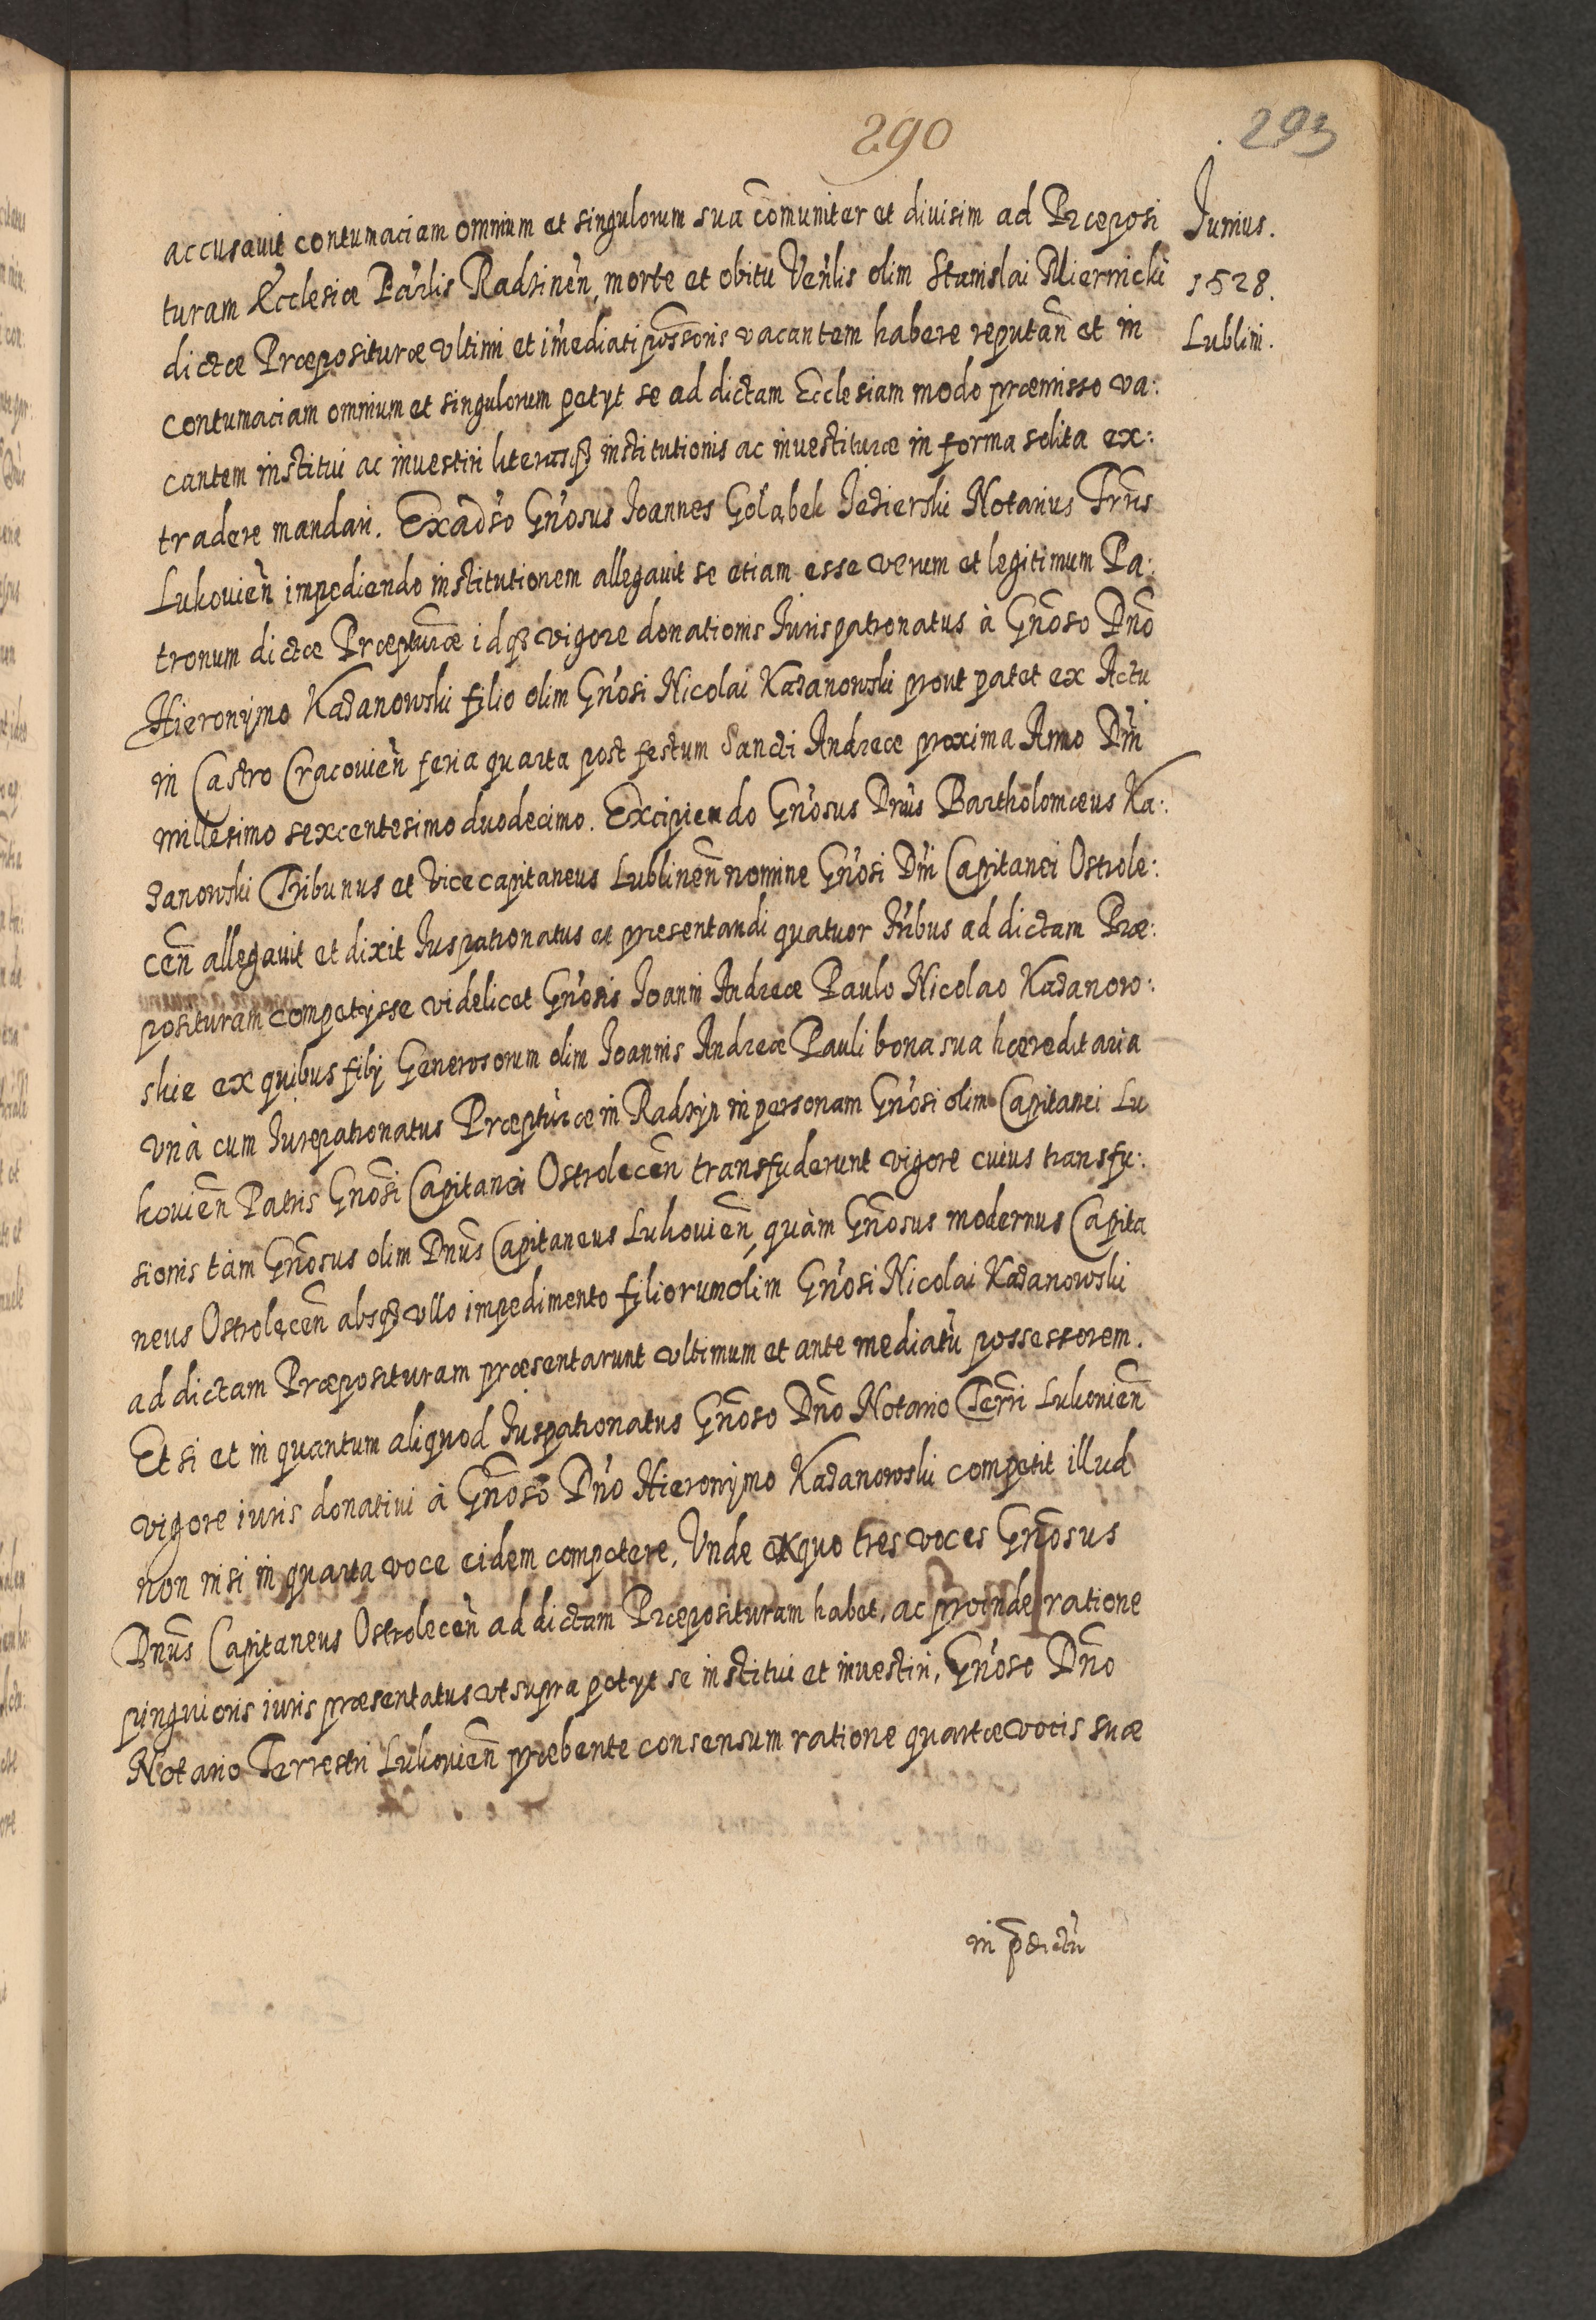 290
293
Junius.
1528.
Lublini.
accusavit contumaciam omnium et singulorum sua com̄uniter et divisim ad Præposi
turam Ecclesiæ Pārlis Radzinen̄, morte et obitu Ven̄lis olim Stanislai Miernicki
dictæ Præposituræ ultimi et im̄ediati pos̄soris vacantem habere reputan̄ et in
contumaciam omnium et singulorum petyt se ad dictam Ecclesiam modo præmisso va:
cantem institui ac investiri literasq3 institutionis ac investituræ in forma solita ex:
tradere mandari. Ex ad̄so Gn̄osus Joannes Gołąbek Jezierski Notarius Trr̄is
Lukovien̄ impediendo institutionem allegavit se etiam esse verum et legitimum Pa:
tronum dictæ Præptūræ idq3 vigore donationis Jurispatronatus à Gn̄oso Dn̄o
Hieronymo Kazanowski filio olim Gn̄osi Nicolai Kazanowski prout patet ex Actu
in Castro Cracovien̄ feria quarta post festum Sancti Andreæ proxima Anno Dn̄i
millesimo sexcentesimo duodecimo. Excipiendo Gn̄osus Dn̄us Bartholomæus Ka:
zanowski Tribunus et Vicecapitaneus Lublinen̄ nomine Gn̄osi Dn̄i Capitanei Ostrole:
cen̄ allegavit et dixit Juspatronatus et præsentandi quatuor fr̄ibus ad dictam Præ:
posituram competysse videlicet Gn̄osis Joanni Andreæ Paulo Nicolao Kazanow:
skie ex quibus filij Generosorum olim Joannis Andreæ Pauli bona sua hæreditaria
unà cum Jurepatronatus Præptūræ in Radzyn in personam Gn̄osi olim Capitanei Lu
kovien̄ Patris Gn̄osi Capitanei Ostrolecen̄ transfuderunt vigore cuius transfu:
sionis tàm Gn̄osus olim Dn̄us Capitaneus Lukovien̄, quàm Gn̄osus modernus Capita
neus Ostrolęcen̄ absq3 ullo impedimento filiorum olim Gn̄osi Nicolai Kazanowski
ad dictam Præposituram præsentarunt ultimum et ante mediatū possessorem.
Et si et in quantum aliquod Juspatronatus Gn̄oso Dn̄o Notario Terr̄i Lukovien̄
vigore iuris donativi à Gn̄oso Dn̄o Hieronymo Kazanowski competit illud
non nisi in quarta voce eidem competere. Unde ex quo tres voces Gn̄osus
Dn̄us Capitaneus Ostrolecen̄ ad dictam Præposituram habet, ac proinde ratione
pinguioris iuris præsentatus ut supra petyt se institui et investiri, Gn̄oso Dn̄o
Notario Terrestri Lukovien̄ præbente consensum ratione quartæ vocis suæ
in p̄dictū